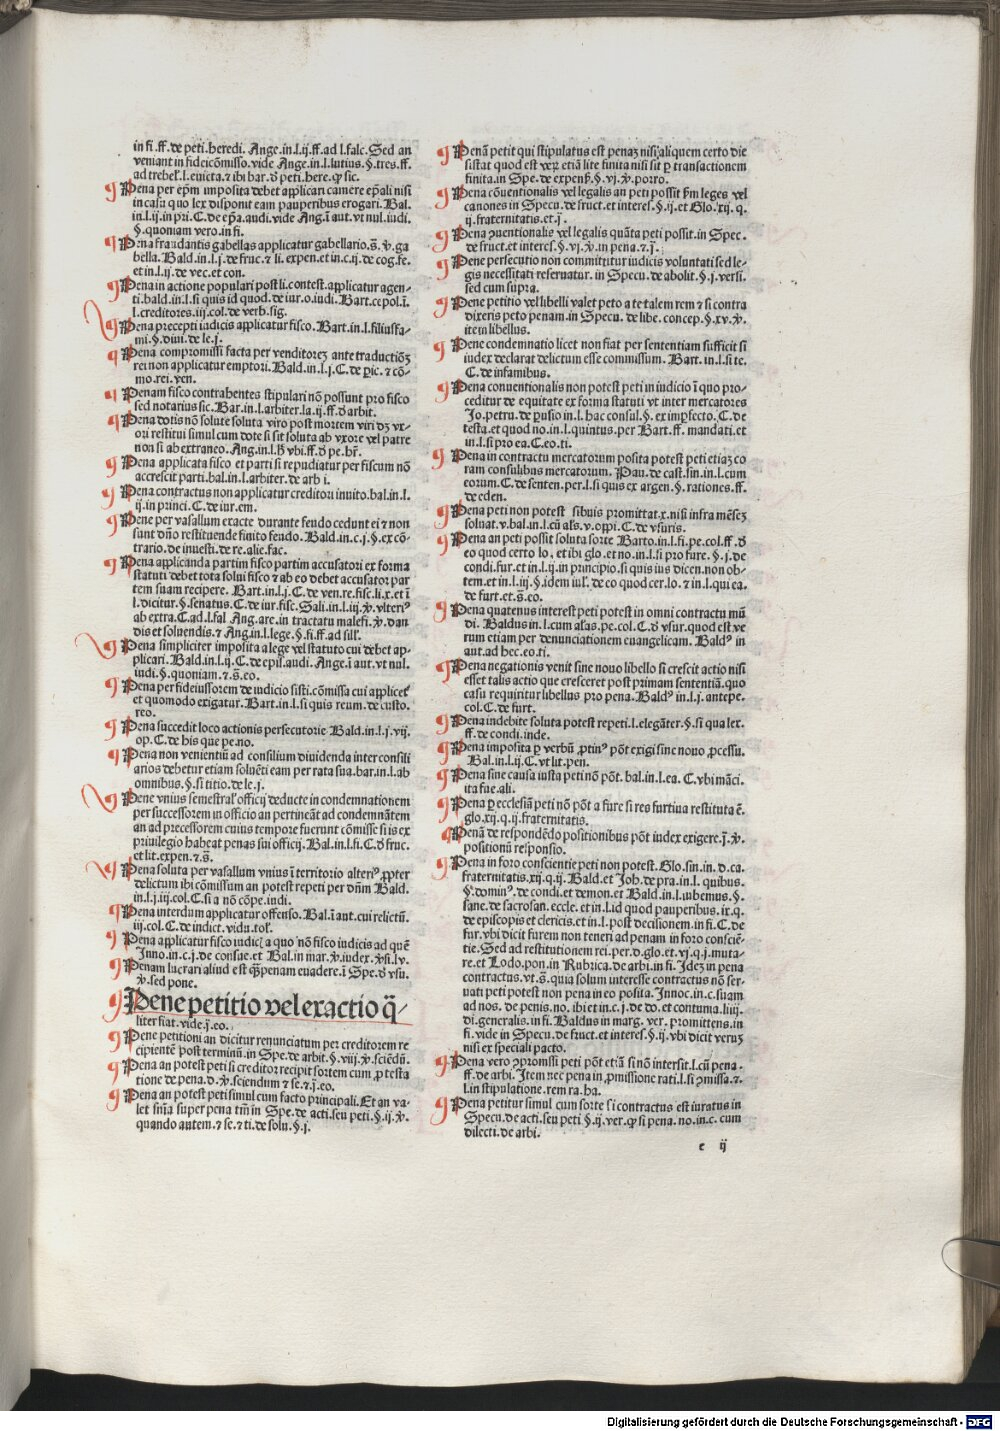 in fi. ff. de peti. heredi. Ange. in. l. ij. ff. ad l. falc. Sed an
veniant in fideicōmisso. vide Ange. in. l. lutius. §. tres. ff.
ad trebel'. l. euicta. ⁊ ibi bar. ð peti. here. qꝫ sic.
Pena per ep̄m imposita debet applicari camere ep̄ali nisi
in casu quo lex disponit eam pauperibus erogari. Bal.
in. l. ij. in pri. C. de ep̄a. audi. vide Ang. ī aut. vt nul. iudi.
§. quoniam vero. in fi.
Pena fraudantis gabellas applicatur gabellario. s̄. ꝟ. ga
bella. Bald. in. l. j. de fruc. ⁊ li. expen. et in. c. ij. de cog. fe.
et in. l. ij. de vec. et con.
Pena in actione populari post li. contest. applicatur agen-
ti. bald. in. l. si quis id quod. de iur. o. iudi. Bart. ce pol. ī.
l. creditores. iij. col. de verb. sig.
Pena precepti iudicis applicatur fisco. Bart. in. l. filiusfa-
mi. §. diui. de le. j.
Pena compromissi facta per venditorez ante traductiōꝫ
rei non applicatur emptori. Bald. in. l. j. C. de ꝑic. ⁊ cō-
mo. rei. ven.
Penam fisco contrahentes stipulari nō possunt pro fisco
sed notarius sic. Bar. in. l. arbiter. la. ij. ff. ð arbit.
Pena dotis nō solute soluta viro post mortem viri dꝫ vx-
ori restitui simul cum dote si sit soluta ab vxore vel patre
non si ab extraneo. Ang. in. l. ꝟ vbi. ff. ð pe. hr̄.
Pena applicata fisco et parti si repudiatur per fiscum nō
accrescit parti. bal. in. l. arbiter. de arb i.
Pena contractus non applicatur creditori inuito. bal. in. l.
ij. in princi. C. de iur. em.
Pene per vasallum exacte durante feudo cedunt ei ⁊ non
sunt dn̄o restituende finito feudo. Bald. in. c. j. §. ex cō-
trario. de inuesti. de re. alie. fac.
Pena applicanda partim fisco partim accusatori ex forma
statuti debet tota solui fisco ⁊ ab eo debet accusator par
tem suam recipere. Bart. in. l. j. C. de ven. re. fisc. li. x. et ī
l. dicitur. §. senatus. C. de iur. fisc. Sali. in. l. iij. ꝟ. vlteri⁹
ab extra. C. ad. l. fal Ang. are. in tractatu malefi. ꝟ. dan
dis et soluendis. ⁊ Ang. in. l. lege. §. fi. ff. ad sill'.
Pena simpliciter imposita a lege vel statuto cui debet ap-
plicari. Bald. in. l. ij. C. de epis. audi. Ange. ī aut. vt nul.
iudi. §. quoniam. ⁊. s̄. eo.
Pena per fideiussorem de iudicio sisti. cōmissa cui applicet'
et quomodo exigatur. Bart. in. l. si quis reum. de custo.
reo.
Pena succedit loco actionis persecutorie Bald. in. l. j. vij.
op. C. de his que pe. no.
Pena non venientiū ad consilium diuidenda inter consili
arios debetur etiam soluēti eam per rata sua. bar. in. l. ab
omnibus. §. si titio. de le. j.
Pene vnius semestral' officij deducte in condemnationem
per successorem in officio an pertineāt ad condemnātem
an ad precessorem cuius tempore fuerunt cōmisse si is ex
priuilegio habeat penas sui officij. Bal. in. l. fi. C. ð fruc.
et lit. expen. ⁊. s̄.
Pena soluta per vasallum vnius ī territorio alteri⁹ ꝓpter
delictum ibi cōmissum an potest repeti per dn̄m Bald.
in. l. j. iij. col. C. si a nō cōpe. iudi.
Pena interdum applicatur offenso. Bal. ī aut. cui relictū.
iij. col. C. de indict. vidu. tol'.
Pena applicatur fisco iudic̄ a quo nō fisco iudicis ad quē
Inno. in. c. j. de consue. et Bal. in mar. ꝟ. iudex. ꝟsi. lv.
Penam lucrari aliud est qꝫ penam euadere. ī Spe. ð vsu.
ꝟ. sed pone.
Pene petitio vel exactio q̄-
liter fiat. vide. j. eo.
Pene petitioni an dicitur renunciatum per creditorem re
cipientē post terminū. in Spe. de arbit. §. viij. ꝟ. sciēdū.
Pena an potest peti si creditor recipit sortem cum ꝓ testa
tione de pena. ð. ꝟ. sciendum ⁊ se. ⁊. j. eo.
Pena an potest peti simul cum facto principali. Et an va-
let sn̄ia super pena tm̄ in Spe. de acti. seu peti. §. ij. ꝟ.
quando autem. ⁊ se. ⁊ ti. de solu. §. j.
Penā petit qui stipulatus est penaꝫ nisi aliquem certo die
sistat quod est veꝝ etiā lite finita nisi sit ꝑ transactionem
finita. in Spe. de expens̄. §. vj. ꝟ. porro.
Pena cōuentionalis vel legalis an peti possit ꝑm leges vel
canones in Specu. de fruct. et interes. §. ij. et Glo. xij. q.
ij. fraternitatis. et. j.
Pena ꝯuentionalis vel legalis quāta peti possit. in Spec.
de fruct. et interes. §. vj. ꝟ. in pena. ⁊. j.
Pene persecutio non committitur iudicis voluntati sed le-
gis necessitati reseruatur. in Specu. de abolit. §. j. versi.
sed cum supra.
Pene petitio vel libelli valet peto a te talem rem ⁊ si contra
dixeris peto penam. in Specu. de libe. concep. §. xv. ꝟ.
item libellus.
Pene condemnatio licet non fiat per sententiam sufficit si
iudex declarat delictum esse commissum. Bart. in. l. si te.
C. de infamibus.
Pena conuentionalis non potest peti in iudicio ī quo pro-
ceditur de equitate ex forma statuti vt inter mercatores
Jo. petru. de ꝑusio in. l. hac consul. §. ex imꝑfecto. C. de
testa. et quod no. in. l. quintus. per Bart. ff. mandati. et
in. l. si pro ea. C. eo. ti.
Pena in contractu mercatorum posita potest peti etiaꝫ co
ram consulibus mercatorum. Pau. de cast. sin. in. l. cum
eorum. C. de senten. per. l. si quis ex argen. §. rationes. ff.
de eden.
Pena peti non potest si bis promittat. x. nisi infra mēseꝫ
soluat. v. bal. in. l. cū al's. v. oppi. C. de vsuris.
Pena an peti possit soluta sorte Barto. in. l. fi. pe. col. ff. ð
eo quod certo lo. et ibi glo. et no. in. l. si pro fure. §. j. de
condi. fur. et in. l. ij. in principio. si quis ius dicen. non ob-
tem. et in. l. iij. §. idem iul'. de eo quod cer. lo. ⁊ in. l. qui ea.
de furt. et. s̄. eo.
Pena quatenus interest peti potest in omni contractu mū
di. Baldus in. l. cum al'as. pe. col. C. ð vsur. quod est ve
rum etiam per denunciationem euangelicam. Bald⁹ in
aut. ad hec. eo. ti.
Pena negationis venit sine nouo libello si crescit actio nisi
esset talis actio que cresceret post primam sententiā. quo
casu requiritur libellus pro pena. Bald⁹ in. l. j. antepe.
col. C. de furt.
Pena indebite soluta potest repeti. l. elegāter. §. si qua lex.
ff. de condi. inde.
Pena imposita ꝑ verbū ꝓtin⁹ pōt exigi sine nouo ꝓcessu.
Bal. in. l. ij. C. vt lit. pen.
Pena sine causa iusta peti nō pōt. bal. in. l. ea. C. vbi mād.
ita fue. ali.
Pena ꝑ ecclesiā peti nō pōt a fure si res furtiua restituta ē.
glo. xij. q. ij. fraternitatis.
Penā de respondēdo positionibus pōt iudex exigere. j. ꝟ.
positionū responsio.
Pena in foro conscientie peti non potest. Glo. sin. in. d. ca.
fraternitatis. xij. q. ij. Bald. et Joh. de pra. in. l. quibus.
§. domin⁹. de condi. et demon. et Bald. in. l. iubemus. §.
sane. de sacrosan. eccle. et in. l. id quod pauperibus. ix. q.
de episcopis et clericis. et in. l. post decisionem. in fi. C. de
fur. vbi dicit furem non teneri ad penam in foro consciē-
tie. Sed ad restitutionem rei. per. d. glo. et. vj. q. j. muta-
re. et Lodo. pon. in Rubrica. de arbi. in fi. Idez in pena
contractus. vt. s̄. quia solum interesse contractus nō ser-
uati peti potest non pena in eo posita. Innoc. in. c. suam
ad nos. de penis. no. ibi et in. c. j. de do. et contuma. liiij.
di. generalis. in fi. Baldus in marg. ver. promittens. in
fi. vide in Specu. de fruct. et interes. §. ij. vbi dicit veruꝫ
nisi ex speciali pacto.
Pena vero ꝯpromissi peti pōt etiā si nō intersit. l. cū pena.
ff. de arbi. Item nec pena in ꝓmissione rati. l. si ꝯmissa. ⁊.
l. in stipulatione. rem ra. ha.
Pena petitur simul cum sorte si contractus est iuratus in
Specu. de acti. seu peti §. ij. ver. qꝫ si pena. no. in. c. cum
dilecti. de arbi.
e ij
Digitalisierung gefördert durch die Deutsche Forschungsgemeinschaft - DFG